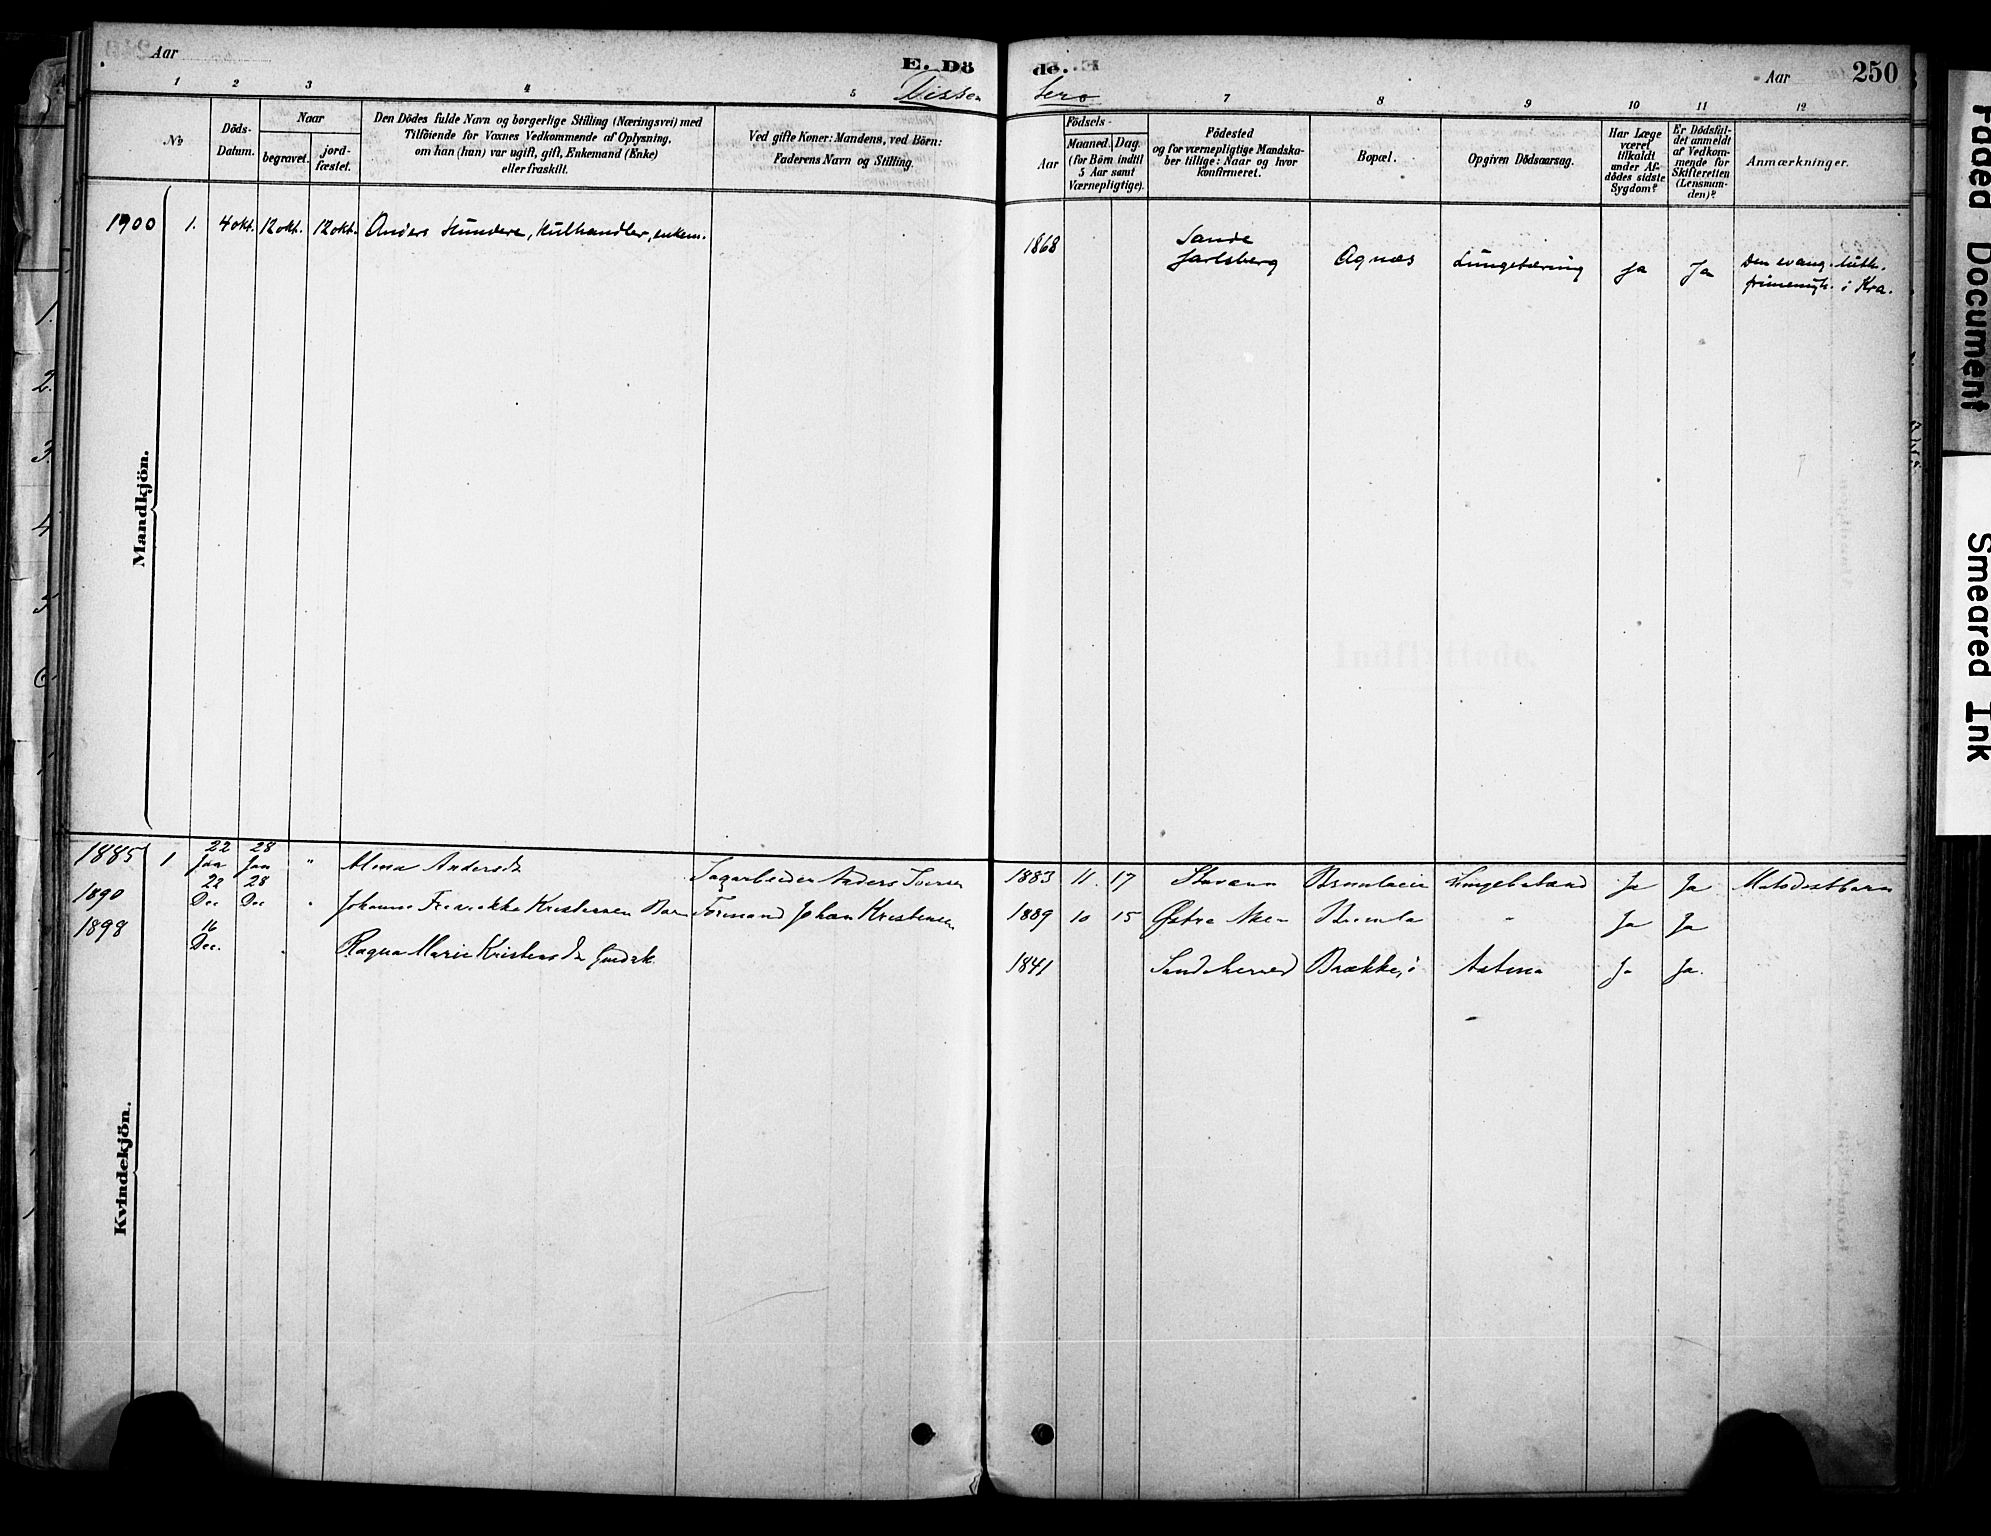 Aar
E. Dö
de.
Aar
250
Dissen
tere
1 2 3 4 5 7 8 9 10 11 12
No
Döds-
Datum.
Naar
begravet.
jord-
fæstet.
Den Dödes fulde Navn og borgerlige Stilling (Næringsvei) med
Tilföiende for Voxnes Vedkommende af Oplysning,
om han (hun) var ugift, gift, Enkemand (Enke)
eller fraskilt.
Ved gifte Koner: Mandens, ved Börn:
Faderens Navn og Stilling.
Födsels-
Aar
Maaned. Dag.
(for Börn indtil
5 Aar samt
Værnepligtige).
Födested
og for værnepligtige Mandska-
ber tillige: Naar og hvor
konfirmeret.
Bopæl.
Opgiven Dödsaarsag.
Har Læge
været
tilkaldt
under Af-
dödes sidste
Sygdom?
Er Dödsfal-
det anmeldt
af Vedkom-
mende for
Skifteretten
(Lensman-
den)?
Anmærkninger.
Mandkjön.
1900 1. 4 okt. 12 okt. 12 okt. Anders Hundere, kulhandler, enkem. 1868 Sande
Jarlsberg Agnæs Lungetæring Ja Ja Den evang. luth.
frimenigh. i Kra.
Kvindekjön.
1885 1 22 Jan 28 Jan " Alma Andersdr Sagarbeider Anders Iversen 1883 11 17 Stavern Brunlaveie Ja Ja
1890 22 Dec 28 Dec " Johanne Fredrikke Kristensen Barn Formand Johan Kristensen 1889 10 15 Østre Aker " Ja Ja
1898 16 Dec. " Ragna Marie Kristensdr 1841 Sandeherred Brække, i Astma Ja Ja.
Faded Document
Smeared Ink